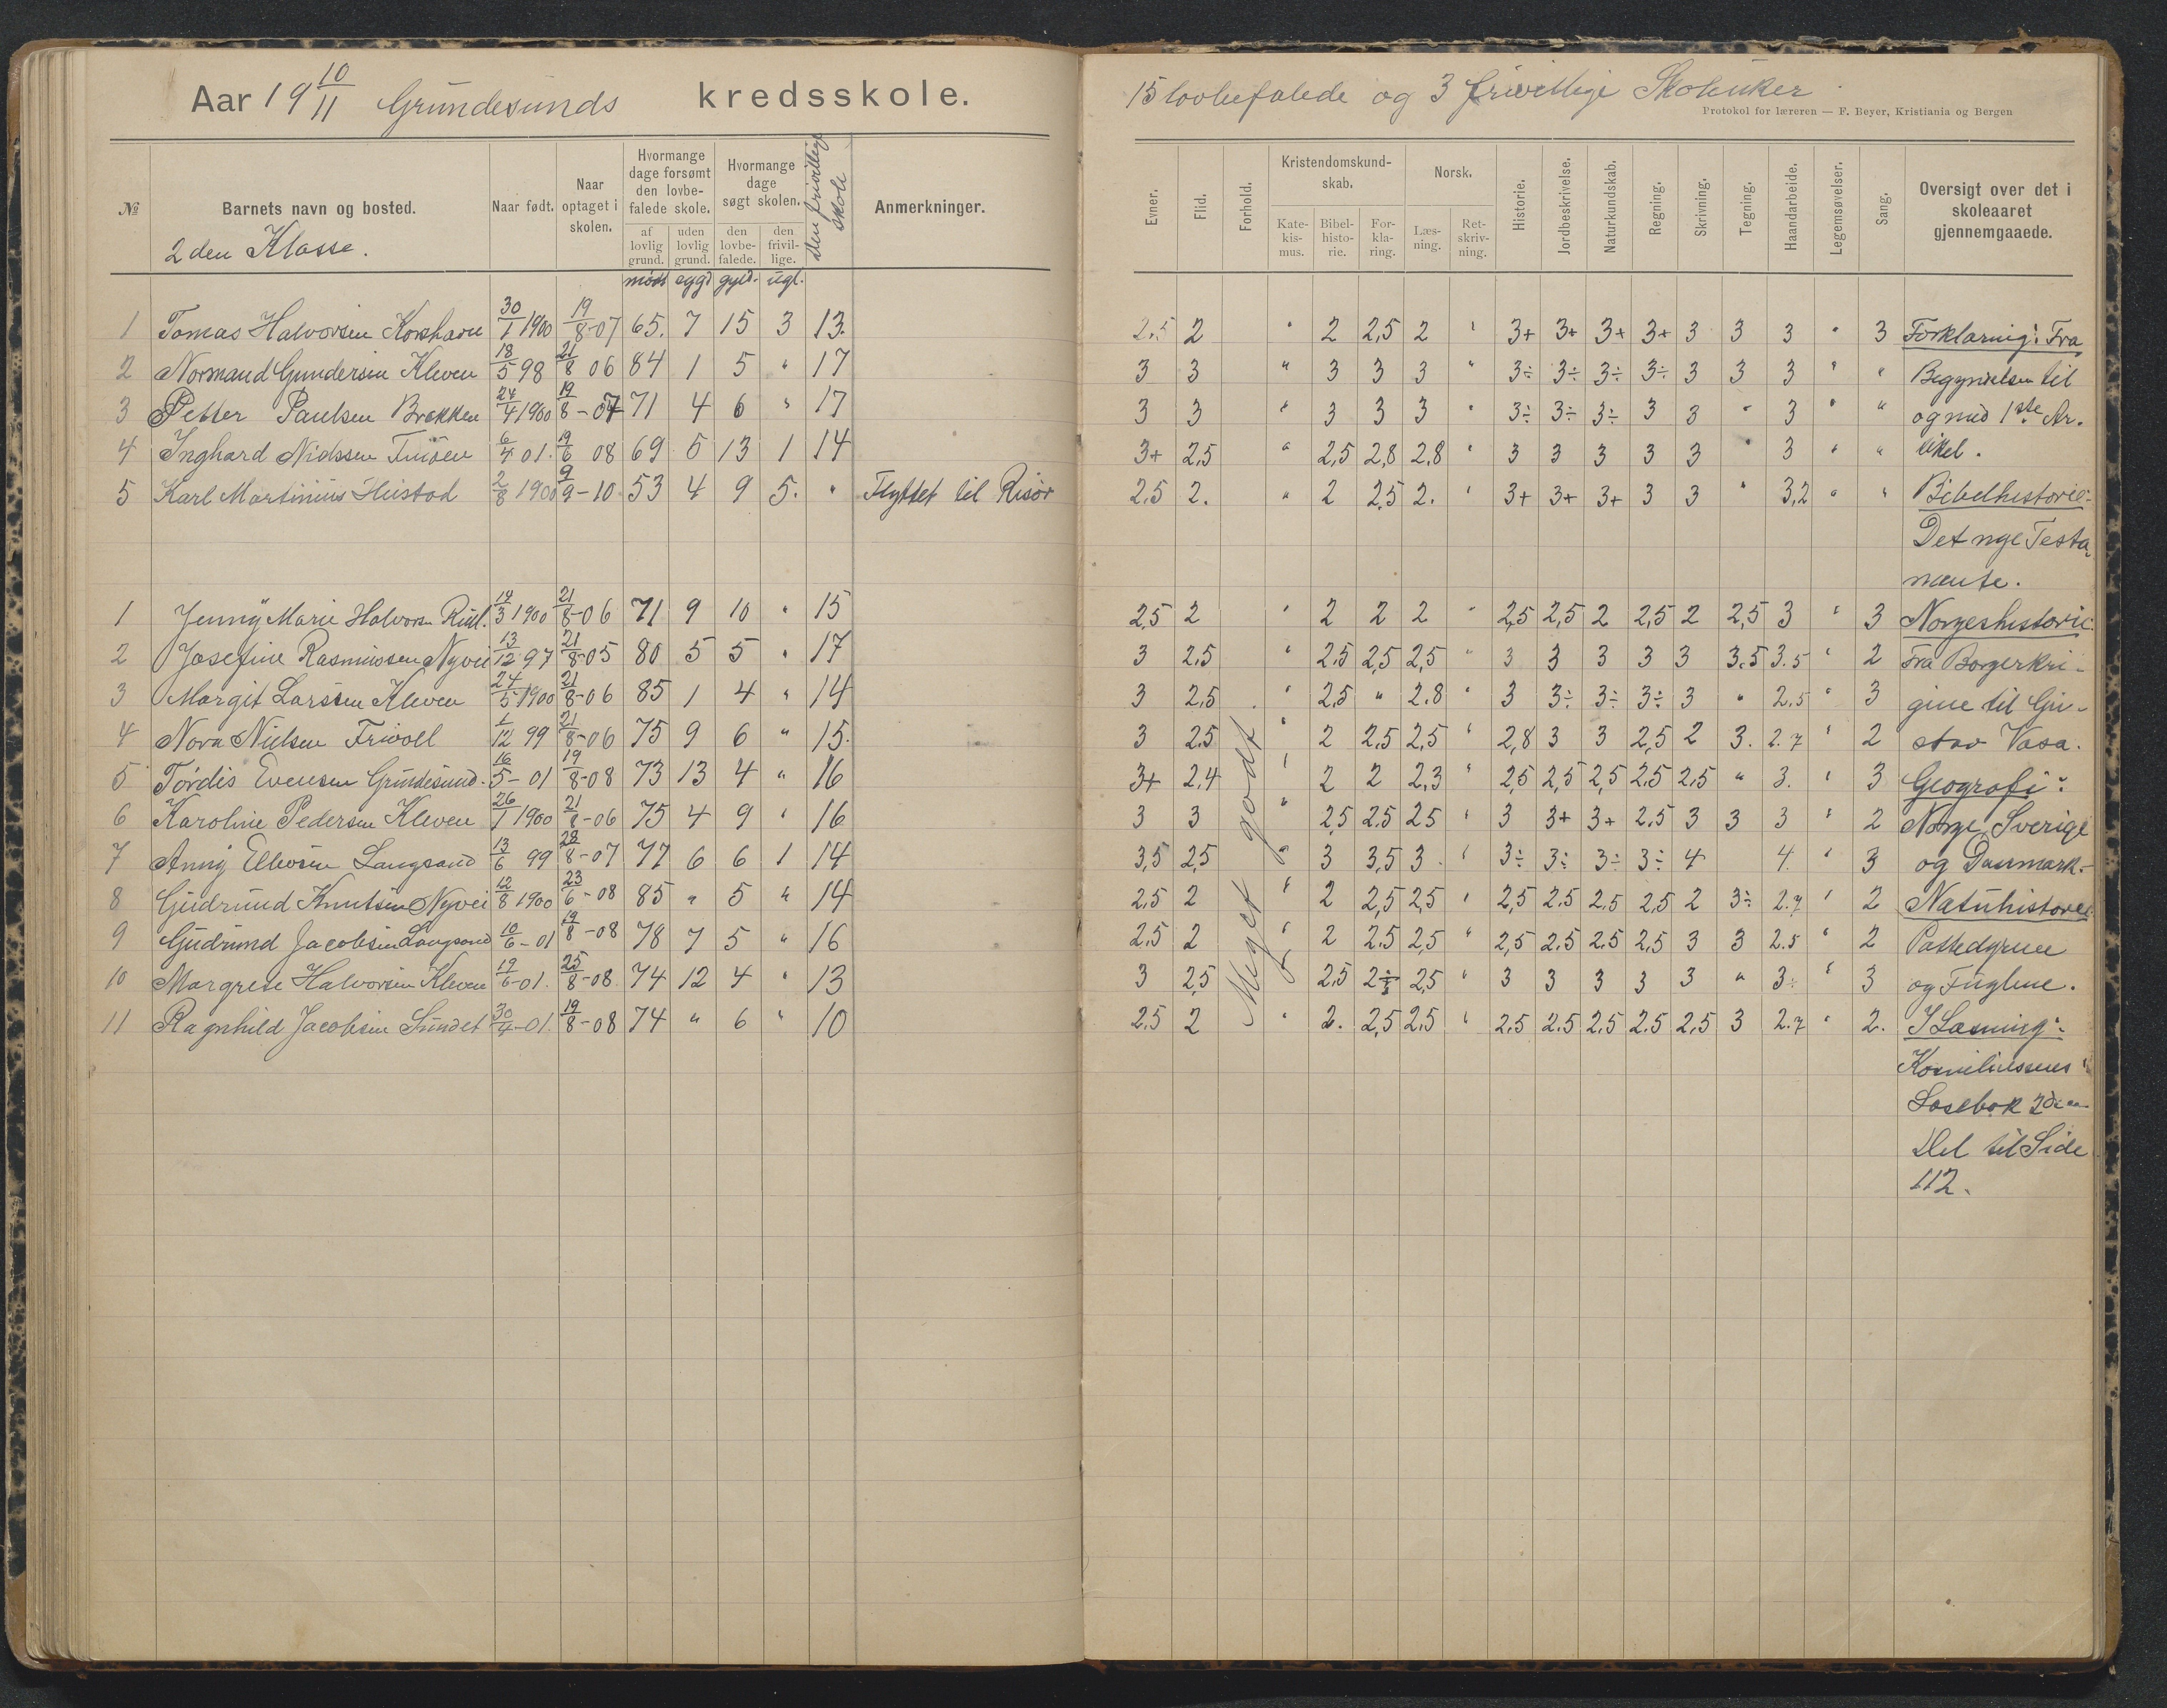 Aar 19 10/11 Grundesunds kredsskole.
№ Barnets navn og bosted. Naar født. Naar optaget i skolen. Hvormange dage forsømt den lovbefalede skole. af lovlig grund. uden lovlig grund. Hvormange dage søgt skolen. den lovbefalede. den frivillige. Den frivillige skole Anmerkninger.
2den Klasse.
mødt sygd gyld. ugl.
1 Tomas Halvorsen Korshavn 30/1 1900 19/8-07 65. 7 15 3 13.
2 Normand Gundersen Kleven 18/5 98 21/8 06 84 1 5 " 17
3 Petter Paulsen Brækken 24/4 1900 19/8-07 71 4 6 " 17
4 Inghard Nielssen 6/4 01. 19/6 08 69 5 13 1 14
5 Karl Martinius Hustad 2/8 1900 9/9-10 53 4 9 5. " Flyttet til Risør
1 Jenny Marie Halvorsn 14/3 1900 21/8-06 71 9 10 " 15
2 Josefine Rasmussen Nyvei 13/12 97 21/8-05 80 5 5 " 17
3 Margit Larssen Kleven 24/5 1900 21/8-06 85 1 4 " 14
4 Nora Nielsen Frivoll 1/12 99 21/8-06 75 9 6 " 15.
5 Tordis Evensen Grundesund. 16/5-01 19/8-08 73 13 4 " 16
6 Karoline Pedersen Kleven 26/1 1900 21/8-06 75 4 9 " 16
7 Anny Ellevsen Langsand 13/6 99 28/8-07 77 6 6 1 14
8 Gudrund Knutsen Nyvei 12/8 1900 23/6-08 85 " 5 " 14
9 Gudrund Jacobsen Langsand 10/6-01 19/8-08 78 7 5 " 16
10 Margrete Halvorsen Kleven 19/6-01. 25/8-08. 74 12 4 " 13
11 Ragnhild Jacobsen Sundet 30/4-01. 19/8-08 74 " 6 " 10
15 lovbefalede og 3 frivillige Skoleuker.
Protokol for læreren — F. Beyer, Kristiania og Bergen
Evner. Flid. Forhold. Kristendomskundskab. Katekismus. Bibelhistorie. Forklaring. Norsk. Læsning. Retskrivning. Historie. Jordbeskrivelse. Naturkundskab. Regning. Skrivning. Tegning. Haandarbeide. Legemsøvelser. Sang. Oversigt over det i skoleaaret gjennemgaaede.
2,5 2 " 2 2,5 2 " 3+ 3+ 3+ 3+ 3 3 3 " 3 Forklarnig: Fra
3 3 " 3 3 3 " 3÷ 3÷ 3÷ 3÷ 3 3 3 " " Begynnelsen til
3 3 " 3 3 3 " 3÷ 3÷ 3÷ 3 3 " 3 " " og med 1ste Ar.
3+ 2,5 " 2,5 2,8 2,8 " 3 3 3 3 3 " 3 " " tikel.
2,5 2. " 2 2,5 2. " 3+ 3+ 3+ 3 3 " 3,2 " " Bibelhistorie:
Det nye Testa
mente.
2,5 2 " 2 2 2 " 2,5 2,5 2 2,5 2 2,5 3 " 3 Norgeshistorie.
3 2,5 " 2,5 2,5 2,5 " 3 3 3 3 3 3.5 3.5 " 2 Fra Borgerkri-
3 2,5 " 2,5 " 2.8 " 3 3÷ 3÷ 3÷ 3 " 2,5 " 3 gene til Gu-
3 2,5 " 2 2,5 2,5 " 2,8 3 3 2,5 2 3. 2.7 " 2 stav Vasa.
3+ 2,4 " 2 2 2,3 " 2,5 2,5 2,5 2,5 2,5 " 3. " 3 Geografi:
3 3 " 2,5 2,5 2,5 " 3 3+ 3+ 2,5 3 3 3 " 2 Norge, Sverige
3,5 2,5 " 3 3,5 3. " 3÷ 3÷ 3÷ 3÷ 4 4. " 3 og Danmark.-
2,5 2 " 2 2,5 2,5 " 2,5 2.5 2.5 2,5 2 3÷ 2.7 " 2 Natuhistorie.
2,5 2 " 2 2.5 2,5 " 2,5 2.5 2.5 2,5 3 3 2.5 " 2 Pattedyrene
3 2,5 " 2,5 2÷ 2,5 " 3 3 3 3 3 " 3÷ " 3 og Fuglene.
2,5 2 " 2. 2,5 2,5 " 2,5 2.5 2.5 2.5 2,5 3 2.7 " 2. I Læsning:
Meget godt
Læsebok 2den
Del til Side
112.